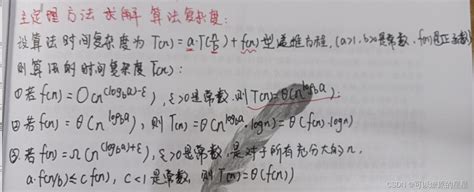 主定理方法求解算法复杂度:
设算法时间复杂度为T(n)=a·T(n/b)+f(n)型递推方程,(a≥1,b>1是常数,f(n)是正函数)
则算法的时间复杂度T(n):
①若f(n)=O(n^(log_b a)-ε),ε>0是常数,则T(n)=θ(n^log_b a);
②若f(n)=θ(n^log_b a),则T(n)=θ(n^log_b a·logn)=θ(f(n)·logn)
③若f(n)=Ω(n^(log_b a)+ε),ε>0是常数,是对于所有充分大的n,
a·f(n/b)≤cf(n),c<1是常数,则T(n)=θ(f(n))
CSDN @可以